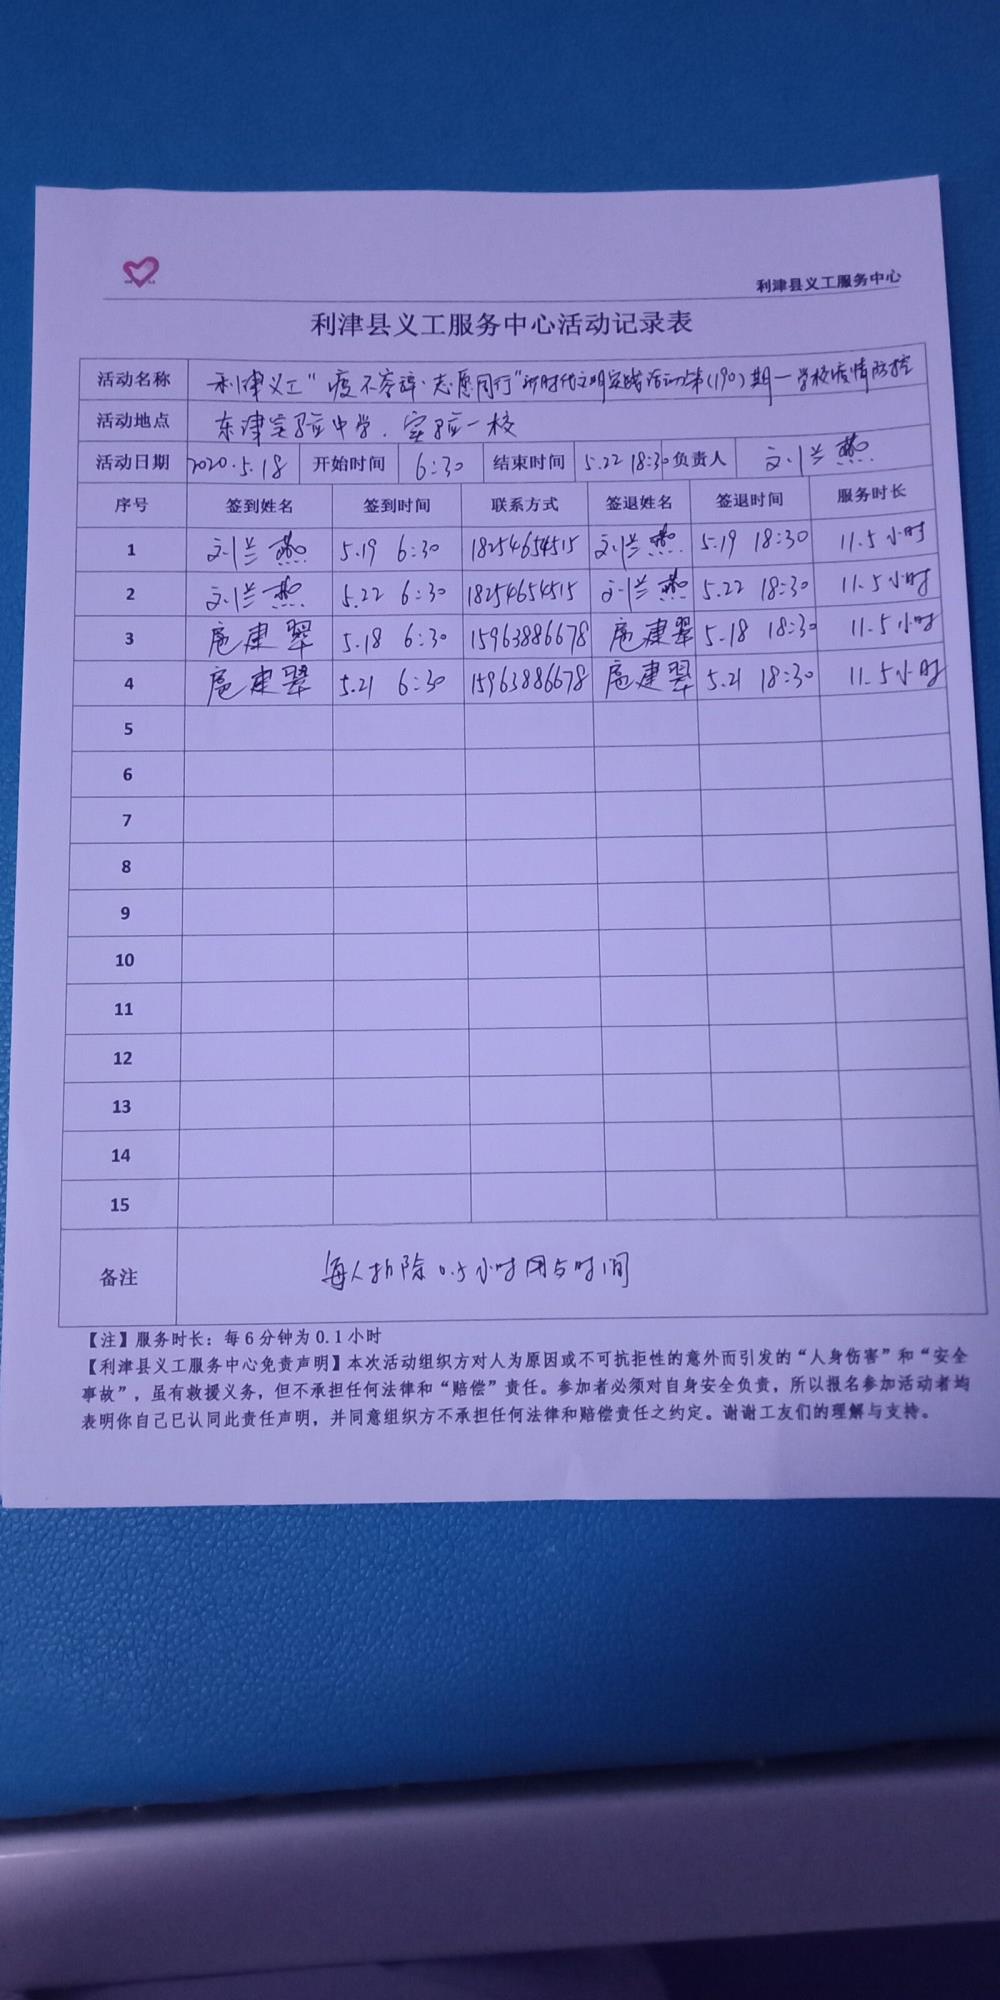 利津县义工服务中心
利津县义工服务中心活动记录表
活动名称 利津义工"疫不容辞·志愿同行"新时代文明实践活动第(190)期—学校疫情防控
活动地点 东津实验中学、实验一校
活动日期 2020.5.18 开始时间 6:30 结束时间 5.22 18:30 负责人 刘兰燕
序号 签到姓名 签到时间 联系方式 签退姓名 签退时间 服务时长
1 刘兰燕 5.19 6:30 18254654515 刘兰燕 5.19 18:30 11.5小时
2 刘兰燕 5.22 6:30 18254654515 刘兰燕 5.22 18:30 11.5小时
3 扈建翠 5.18 6:30 15963886678 扈建翠 5.18 18:30 11.5小时
4 扈建翠 5.21 6:30 15963886678 扈建翠 5.21 18:30 11.5小时
5
6
7
8
9
10
11
12
13
14
15
备注 每人扣除0.5小时用占时间
【注】服务时长：每6分钟为0.1小时
【利津县义工服务中心免责声明】本次活动组织方对人为原因或不可抗拒性的意外而引发的“人身伤害”和“安全
事故”，虽有救援义务，但不承担任何法律和“赔偿”责任。参加者必须对自身安全负责，所以报名参加活动者均
表明你自己已认同此责任声明，并同意组织方不承担任何法律和赔偿责任之约定。谢谢工友们的理解与支持。